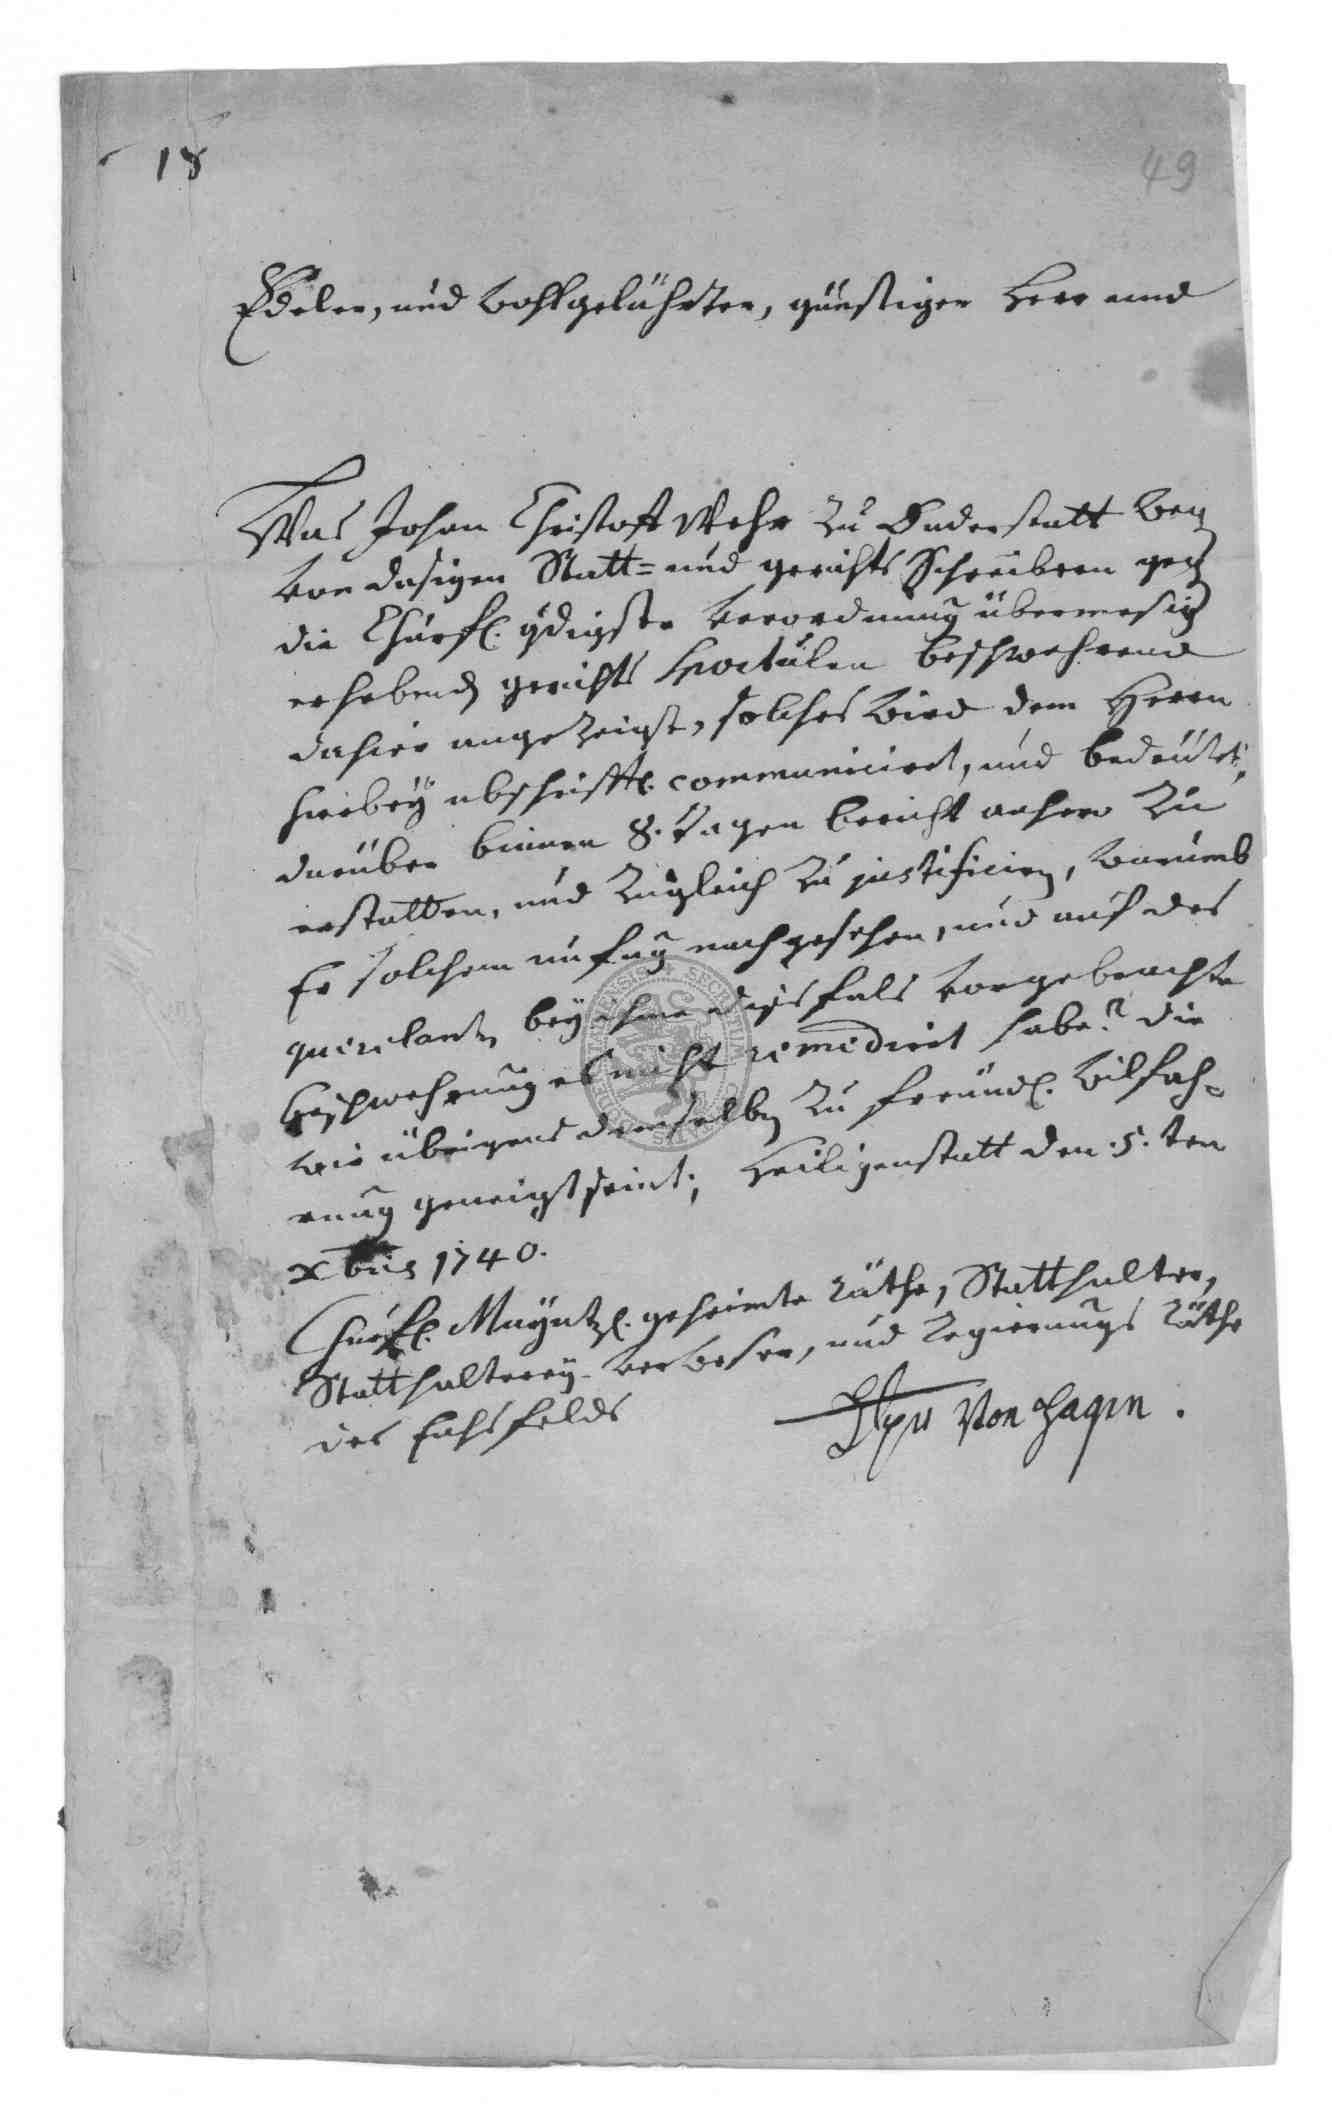 18
49
Edeler, und wohlgelährter, günstiger Herr und
Was Johan Christoff Wehr zu Duderstatt weg
von dasigen Statt= und gerichts Schreibern geg
die Churfl. gdigste verordnung übermesig
erhebend gerichts sportulen beschwehrend
dahier angezeigt, solches wird dem Herrn
hierbeÿ abschrifftl. communicirt, und bedeutet,
darüber binnen 8. tagen bericht anhero zu
erstatten, und zugleich zu justificirn, warumb
Er solchem unfug nachgesehen, und auf des
querelants beÿ ihme disfals vorgebrachte
beschwehrung es nicht remedirt habe? die
wir übrigens demselben zu freundl. wilfah=
rung geneigt seint; Heiligenstatt den .5. ten
Xbris 1740.
Churfl. Maÿntzl. geheimte räthe, Statthalter,
Statthaltereÿ-verweser, und regierungs räthe
des Eichsfelds
von Hagen.